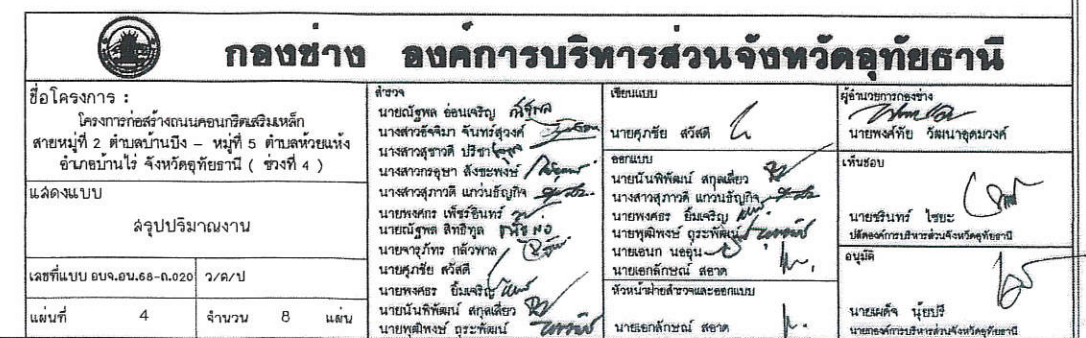 กองช่าง องค์การบริหารส่วนจังหวัดอุทัยธานี
ชื่อโครงการ :
โครงการก่อสร้างถนนคอนกรีตเสริมเหล็ก
สายหมู่ที่ 2 ตำบลบ้านบึง – หมู่ที่ 5 ตำบลห้วยแห้ง
อำเภอบ้านไร่ จังหวัดอุทัยธานี ( ช่วงที่ 4 )
แสดงแบบ
สรุปปริมาณงาน
เลขที่แบบ อบจ.อน.68-ถ.020 ว/ด/ป
แผ่นที่ 4 จำนวน 8 แผ่น
สำรวจ
นายณัฐพล อ่อนเจริญ
นางสาวอัจจิมา จันทร์สุวงค์
นางสาวสุชาวดี ปรีชา
นางสาวกรอุษา สังขะพงษ์
นางสาวสุภาวดี แก่วนธัญกิจ
นายพงศกร เพ็ชร์อินทร์
นายณัฐพล สิทธิกุล
นายจารุภัทร กล้วพาล
นายศุภชัย สวัสดี
นายพงศธร ยิ้มเจริญ
นายนันพิพัฒน์ สกุลเสี่ยว
นายพุฒิพงษ์ ถุระพัฒน์
เขียนแบบ
นายศุภชัย สวัสดี
ออกแบบ
นายนันพิพัฒน์ สกุลเสี่ยว
นางสาวสุภาวดี แก่วนธัญกิจ
นายพงศธร ยิ้มเจริญ
นายพุฒิพงษ์ ถุระพัฒน์
นายเอนก นออุ่น
นายเอกลักษณ์ สอาด
หัวหน้าฝ่ายสำรวจและออกแบบ
นายเอกลักษณ์ สอาด
ผู้อำนวยการกองช่าง
นายพงศ์ทัย วัฒนาอุดมวงศ์
เห็นชอบ
นายชรินทร์ ไชยะ
ปลัดองค์การบริหารส่วนจังหวัดอุทัยธานี
อนุมัติ
นายเผด็จ นุ้ยปรี
นายกองค์การบริหารส่วนจังหวัดอุทัยธานี